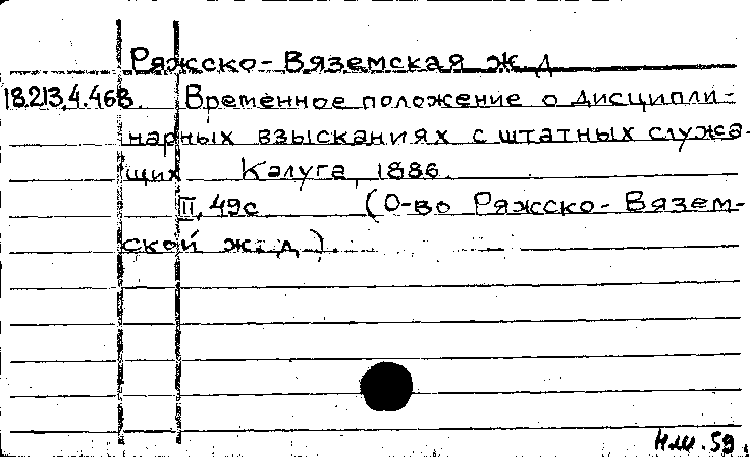 Ряжско-Вяземская ж.д.
18.213.4.468. Временное положение о дисципли-
нарных взысканиях с штатных служа-
щих Калуга, 1886.
II, 49с (О-во Ряжско-Вязем-
ской ж.д.).
59.